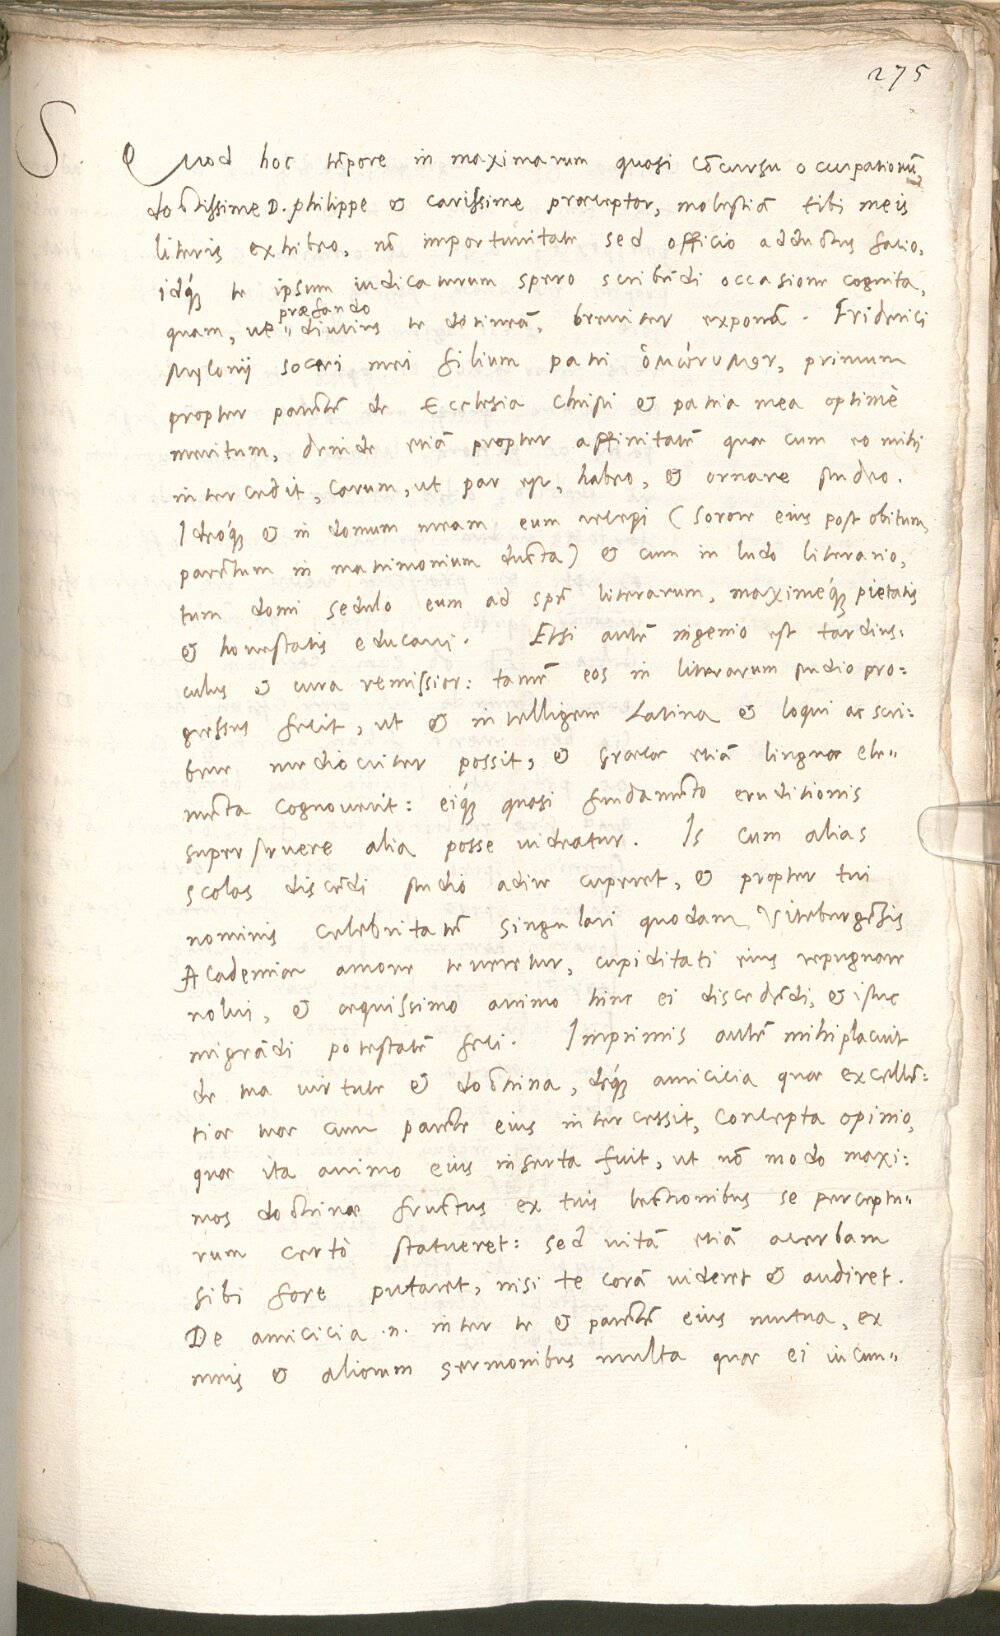 275
S. Quod hoc tēpore in maximarum quasi cōcursu occupationū,
doctissime D. philippe & carissime præceptor, molestiā tibi meis
literis exhibeo, nō importunitate sed officio adductus facio,
idq́ue te ipsum iudicaturum spero scribēdi occasione cognita,
præfando
quam, ne diutius te detineā, breviter exponā. Friderici
Myconij soceri mei filium patri ὁμώνυμον, primum
propter parētē de Ecclesia Christi & patria mea optimè
meritum, deinde etiā propter affinitatē quæ cum eo mihi
intercedit, carum, ut par est, habeo, & ornare studeo.
Ideoq́ue & in domum meam eum recepi (sorore eius post obitum
parētum in matrimonium ducta) & cum in ludo literario,
tum domi sedulo eum ad spē literarum, maximeq́ue pietatis
& honestatis educavi. Etsi autē ingenio est tardius:
culus & cura remissior: tamē eos in literarum studio pro:
gressus fecit, ut & intelligere Latina & loqui ac scri:
bere mediocriter possit, & Græcæ etiā linguæ ele„
mēta cognoverit: eiq́ue quasi fundamēto eruditionis
superstruere alia posse videatur. Is cum alias
scolas discēdi studio adire cuperet, & propter tui
nominis celebritatē singulari quodam Viteburgēsis
Academiæ amore teneretur, cupiditati eius repugnare
nolui, & æquissimo animo hinc ei discedēdi, & istuc
migrādi potestatē feci. Imprimis autē mihi placuit
de tua virtute & doctrina, deq́ue amicicia quæ excellē:
tiæ tuæ cum parēte eius intercessit, concepta opinio,
quæ ita animo eius inserta fuit, ut nō modo maxi:
mos doctrinæ fructus ex tuis lectionibus se perceptu„
rum certò statueret: sed vitā etiā acerbam
sibi fore putaret, nisi te corā videret & audiret.
De amicicia .n. inter te & parētē eius mutua, ex
meis & aliorum sermonibus multa quæ ei iucun„